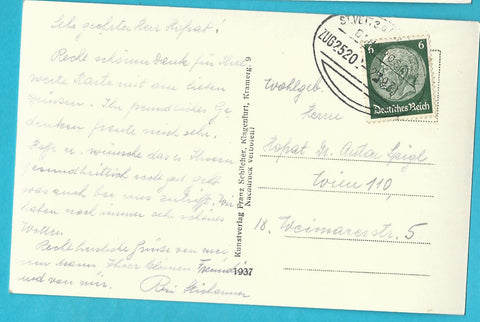 Sehr geehrter Herr Hofrat!
Recht schönen Dank für Ihre
werte Karte mit den lieben
Grüssen. Ihr freundliches Ge-
denken freute mich sehr.
Hoffe u. wünsche das es Ihnen
gesundheitlich recht gut geht
was auch bei uns zutrifft. Wir
haben noch immer sehr schönes
Wetter.
Recht herzliche Grüsse von mei-
nem Mann Ihrer kleinen Freundin
und von mir.
Kunstverlag Franz Schilcher, Klagenfurt, Kramerg. 9
Nachdruck verboten!
1937
ZUG2520
6 6
Deutsches Reich
Wohlgeb.
Herrn
Hofrat Dr. Artur Spigl
Wien 110,
18. Weimarerstr. 5